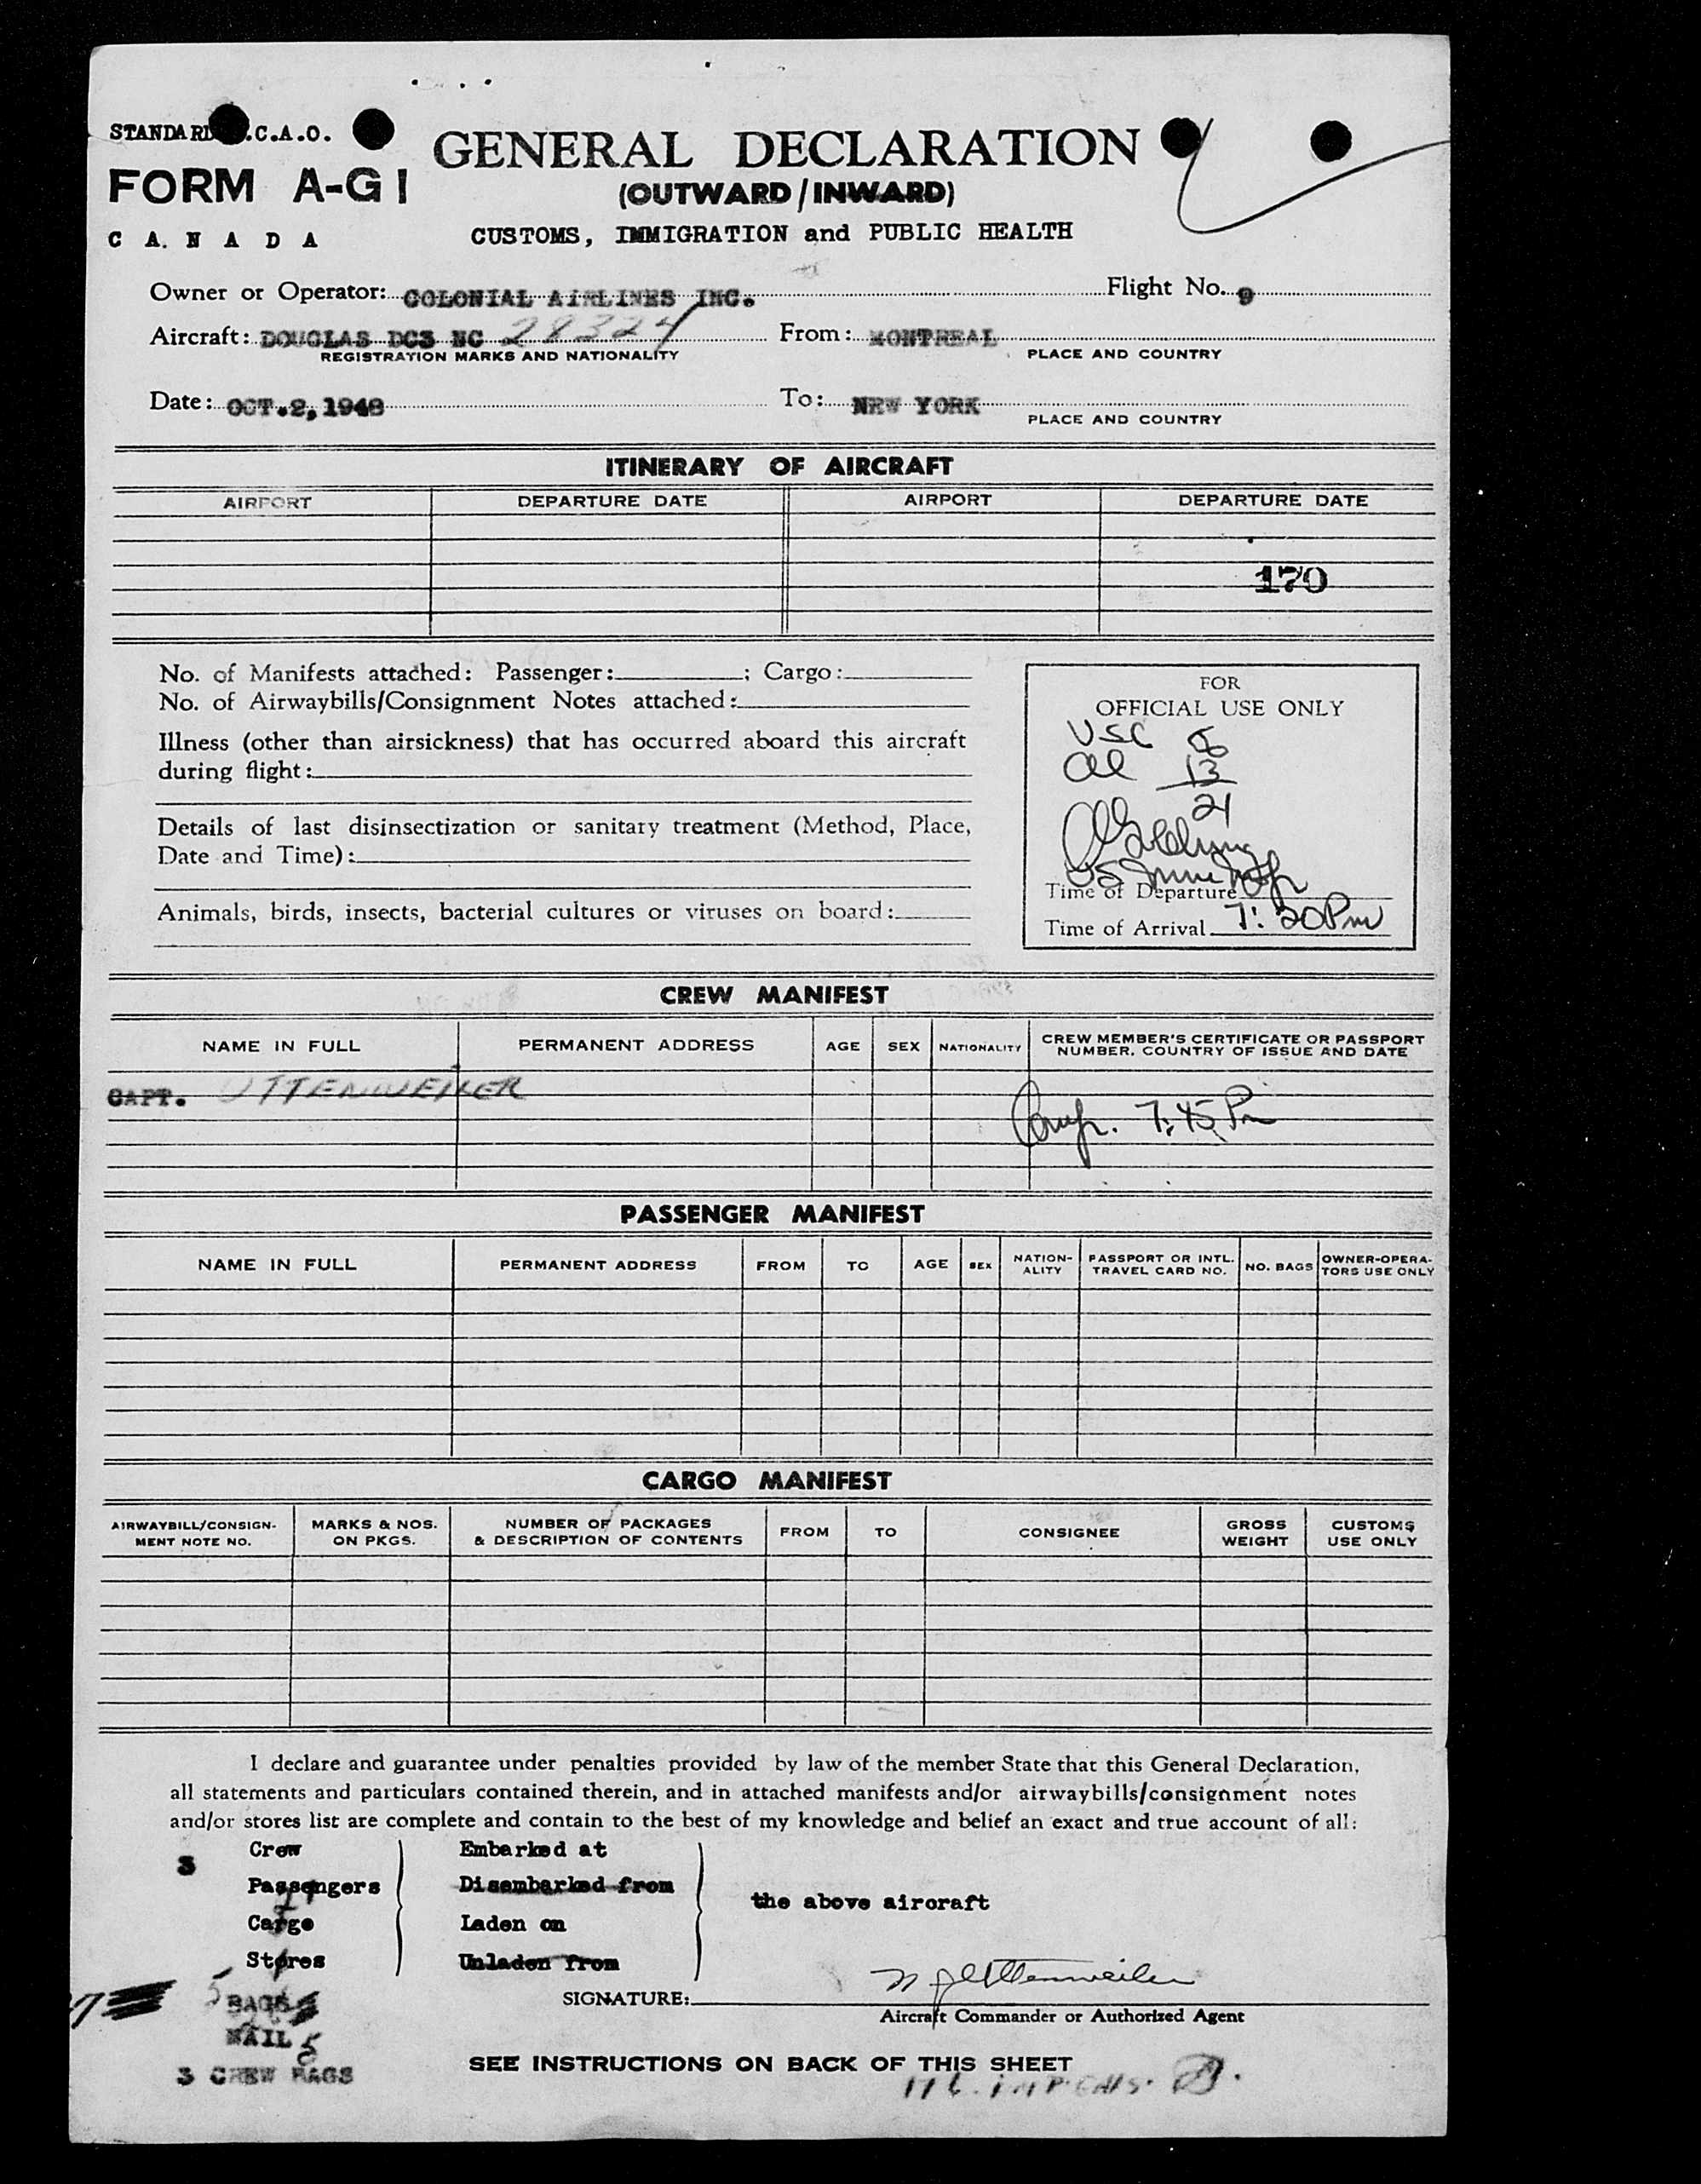 STANDARD .C.A.O.
FORM A-G1
C A. N A D A
GENERAL DECLARATION
(OUTWARD/INWARD)
CUSTOMS, IMMIGRATION and PUBLIC HEALTH
Owner or Operator: COLONIAL AIRLINES INC. Flight No. 9
Aircraft: DOUGLAS DC3 NC 28324 From: MONTREAL
REGISTRATION MARKS AND NATIONALITY PLACE AND COUNTRY
Date: OCT.2,1948 To: NEW YORK
PLACE AND COUNTRY
ITINERARY OF AIRCRAFT
AIRPORT DEPARTURE DATE AIRPORT DEPARTURE DATE
170
No. of Manifests attached: Passenger: ; Cargo:
No. of Airwaybills/Consignment Notes attached:
Illness (other than airsickness) that has occurred aboard this aircraft
during flight:
Details of last disinsectization or sanitary treatment (Method, Place,
Date and Time):
Animals, birds, insects, bacterial cultures or viruses on board:
FOR
OFFICIAL USE ONLY
USC 8
al 13
21
Time of Departure
Time of Arrival 7:20 Pm
CREW MANIFEST
NAME IN FULL PERMANENT ADDRESS AGE SEX NATIONALITY CREW MEMBER'S CERTIFICATE OR PASSPORT
NUMBER, COUNTRY OF ISSUE AND DATE
CAPT. UTTENWEILER
7:45 Pm
PASSENGER MANIFEST
NAME IN FULL PERMANENT ADDRESS FROM TO AGE SEX NATION-
ALITY PASSPORT OR INTL.
TRAVEL CARD NO. NO. BAGS OWNER-OPERA-
TORS USE ONLY
CARGO MANIFEST
AIRWAYBILL/CONSIGN-
MENT NOTE NO. MARKS & NOS.
ON PKGS. NUMBER OF PACKAGES
& DESCRIPTION OF CONTENTS FROM TO CONSIGNEE GROSS
WEIGHT CUSTOMS
USE ONLY
I declare and guarantee under penalties provided by law of the member State that this General Declaration,
all statements and particulars contained therein, and in attached manifests and/or airwaybills/consignment notes
and/or stores list are complete and contain to the best of my knowledge and belief an exact and true account of all:
3 Crew Embarked at
Passengers Disembarked from
the above aircraft
Cargo Laden on
Stores Unladen from
SIGNATURE: N J Uttenweiler
Aircraft Commander or Authorized Agent
5 BAGS
MAIL 5
3 CREW BAGS
SEE INSTRUCTIONS ON BACK OF THIS SHEET